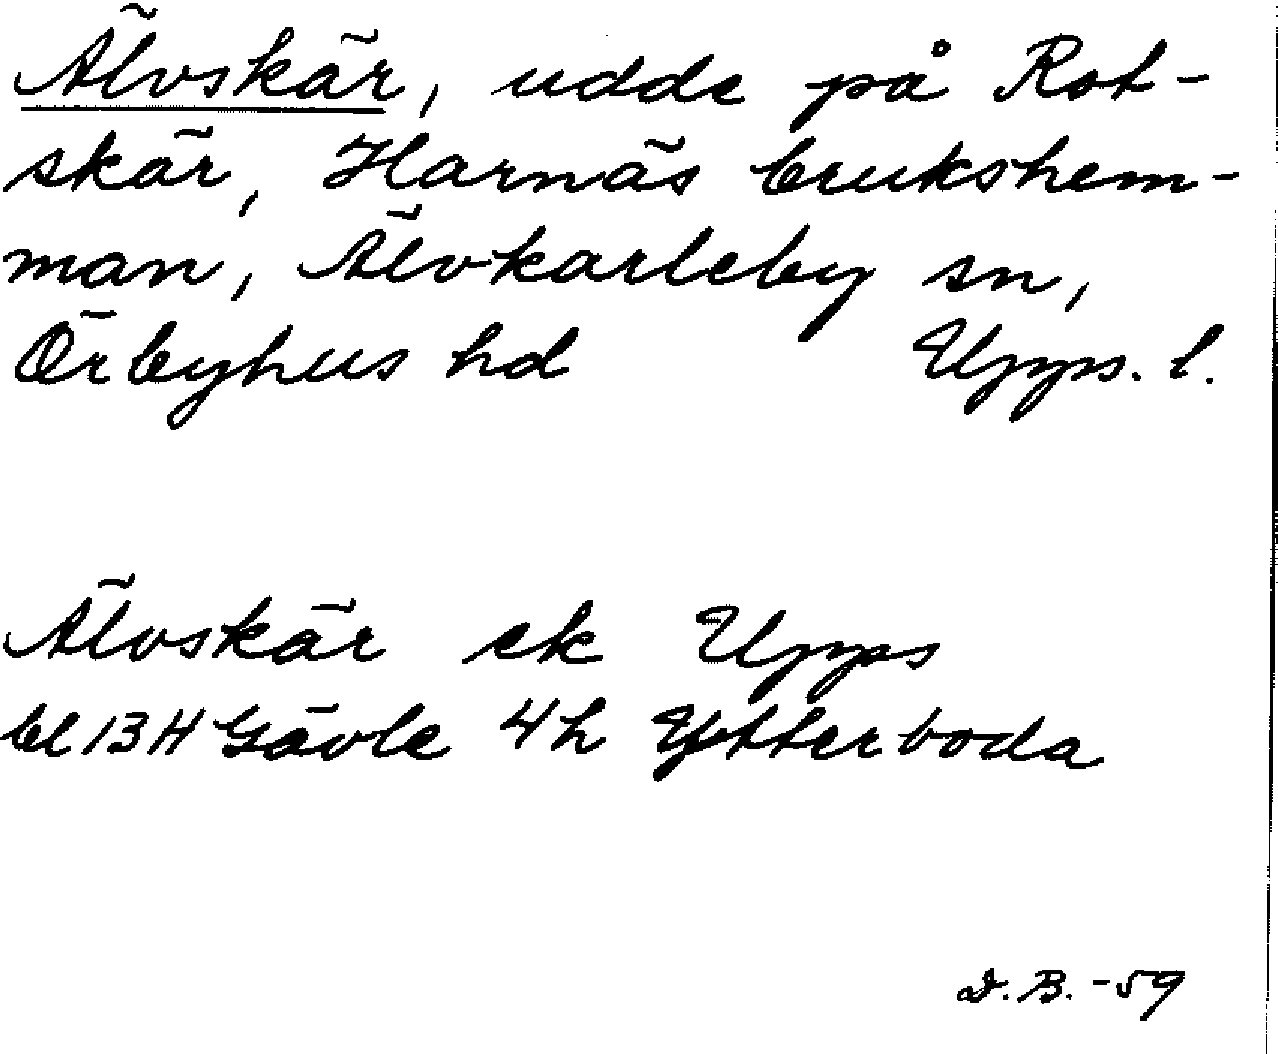 Älvskär, udde på Rot-
skär, Harnäs brukshem-
man, Älvkarleby sn,
Örbyhus hd Upps. l.
Älvskär ek Upps
bl 13H Gävle 4h Ytterboda
D.B. -59